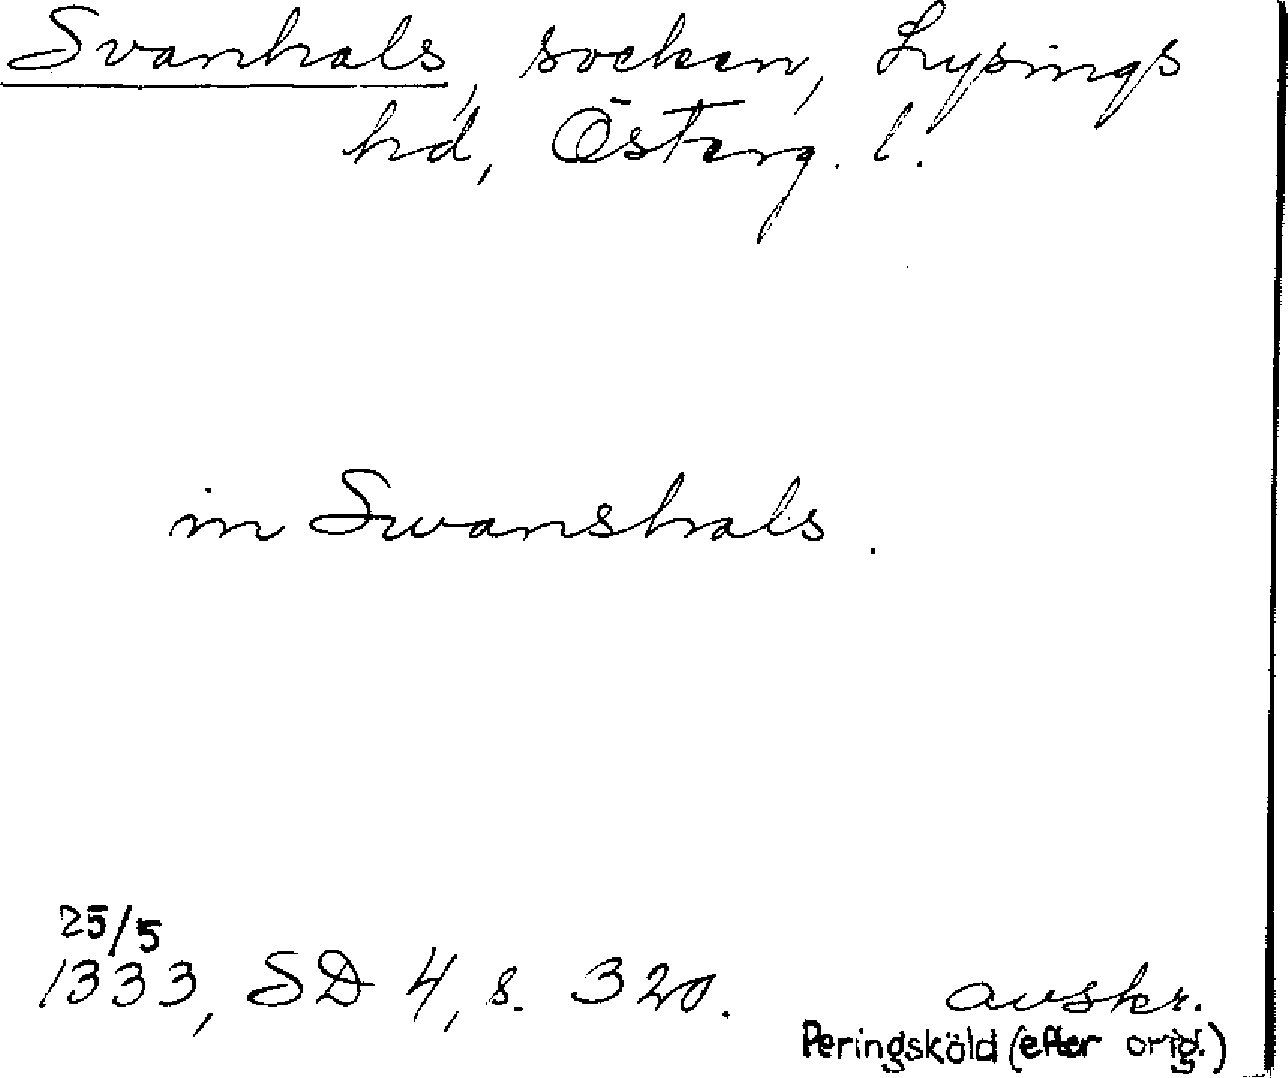 Svanhals, socken, Lysings
hd, Österg. l.
in Swanshals.
25/5
1333, SD 4, s. 320.
avskr.
Peringsköld (efter orig.)